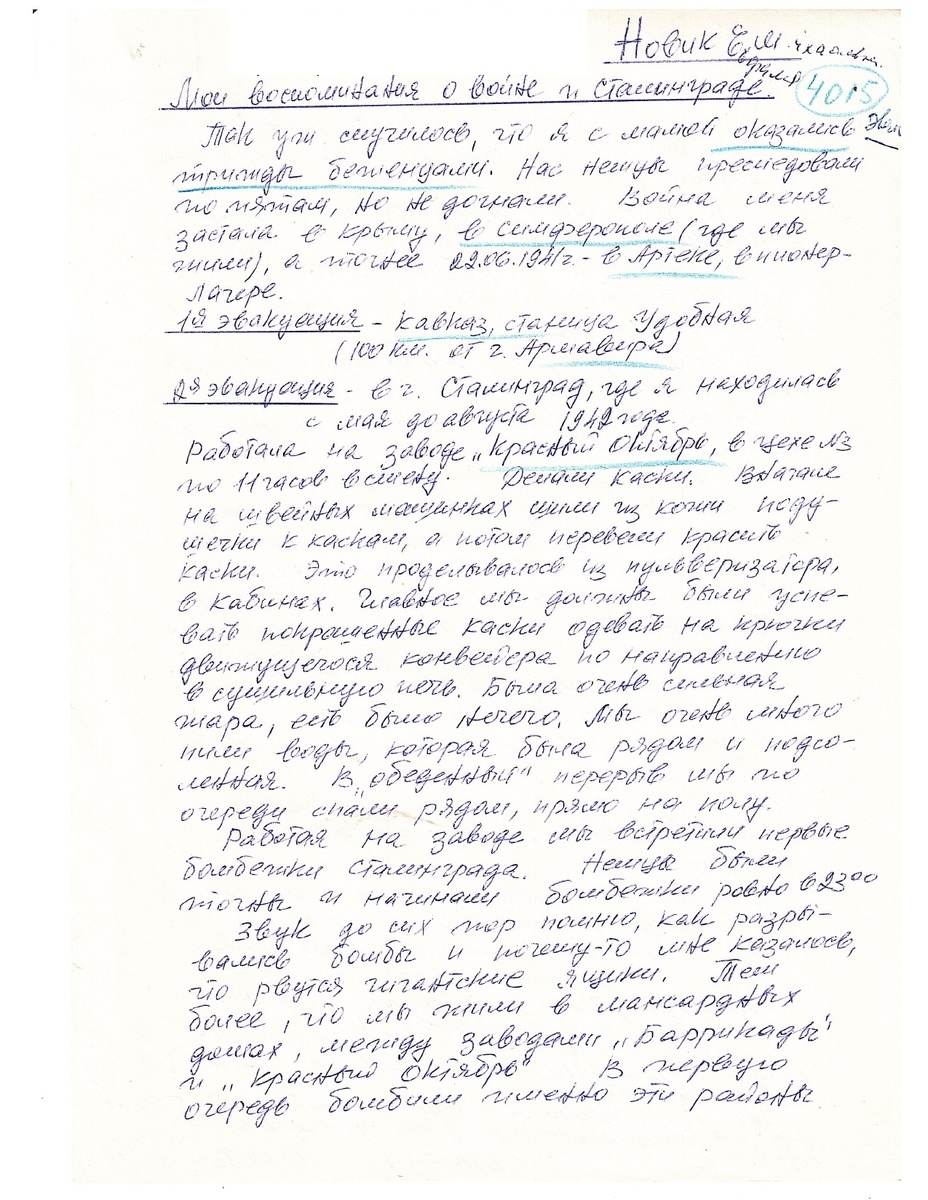 Новик Е.М.
4015
Мои воспоминания о войне и Сталинграде.
Так уж случилось, что я с мамой оказались
трижды беженцами. Нас немцы преследовали
по пятам, но не догнали. Война меня
застала в Крыму, в Симферополе (где мы
жили), а точнее 22.06.1941г. - в Артеке, в пионер-
лагере.
1я эвакуация - Кавказ, станица Удобная
(100 км. от г. Армавира)
2я эвакуация - в г. Сталинград, где я находилась
с мая до августа 1942 года.
Работала на заводе „Красный Октябрь, в цехе №3
по 11 часов в смену. Делали каски. Вначале
на швейных машинках шили из кожи поду-
шечки к каскам, а потом перевели красить
каски. Это проделывалось из пульверизатора,
в кабинах. Главное мы должны были успе-
вать покрашенные каски одевать на крючки
движущегося конвейера по направлению
в сушильную печь. Была очень сильная
жара, есть было нечего. Мы очень много
пили воды, которая была рядом и подсо-
ленная. В „обеденный" перерыв мы по
очереди спали рядом, прямо на полу.
Работая на заводе мы встретили первые
бомбежки Сталинграда. Немцы были
точны и начинали бомбежки ровно в 23 00
Звук до сих пор помню, как разры-
вались бомбы и почему-то мне казалось,
что рвутся гигантские ящики. Тем
более, что мы жили в мансардных
домах, между заводами „Баррикады"
и „Красный Октябрь" В первую
очередь бомбили именно эти районы